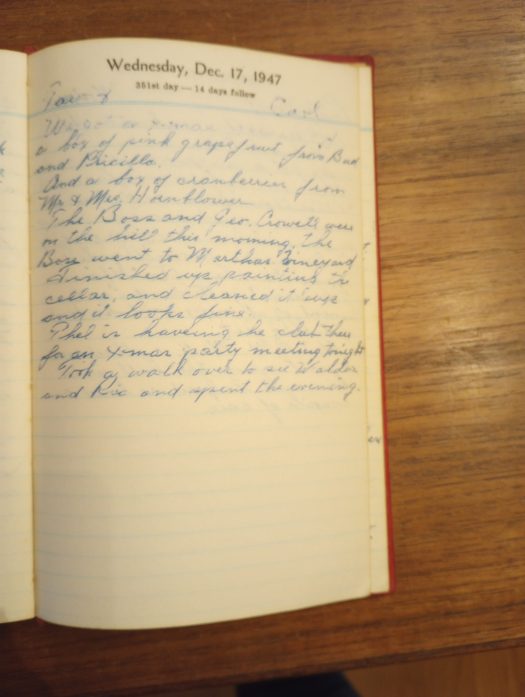 Wednesday, Dec. 17, 1947
351st day — 14 days follow
Rain & Cool
We got a x-mas
a box of pink grapefruit from Bud
and Pricilla.
And a box of cranberries from
Mr & Mrs Hornblower
The Boss and Geo. Crowell were
on the hill this morning, the
Boss went to Marthas Vineyard
Finished up painting the
cellar, and cleaned it
and it looks fine.
is haveing he club
for an x-mas party meeting tonight
Took a walk over to see Walder
and and spent the evening.